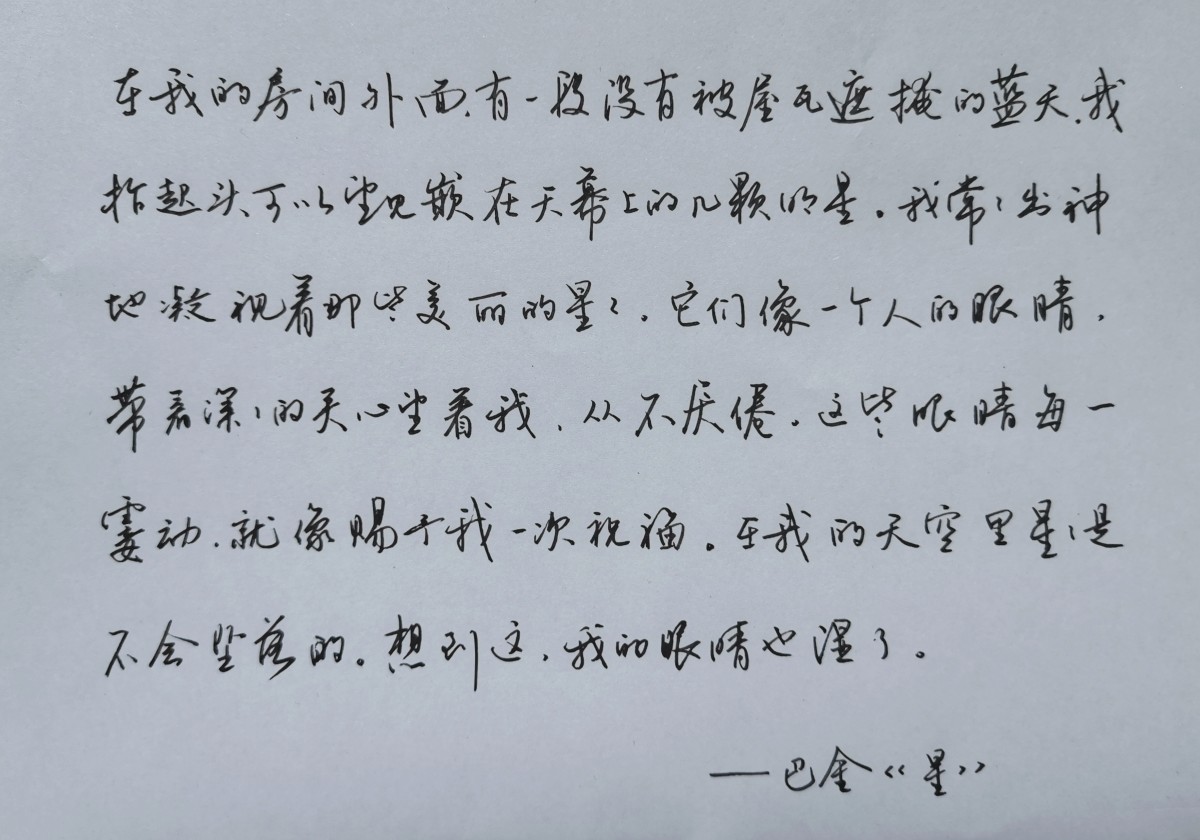 在我的房间外面,有一段没有被屋瓦遮掩的蓝天.我
抬起头可以望见嵌在天幕上的几颗明星。我常常出神
地凝视着那些美丽的星星.它们像一个人的眼睛,
带着深深的关心望着我,从不厌倦。这些眼睛每一
霎动,就像赐予我一次祝福。在我的天空里星星是
不会坠落的。想到这,我的眼睛也湿了。
——巴金《星》